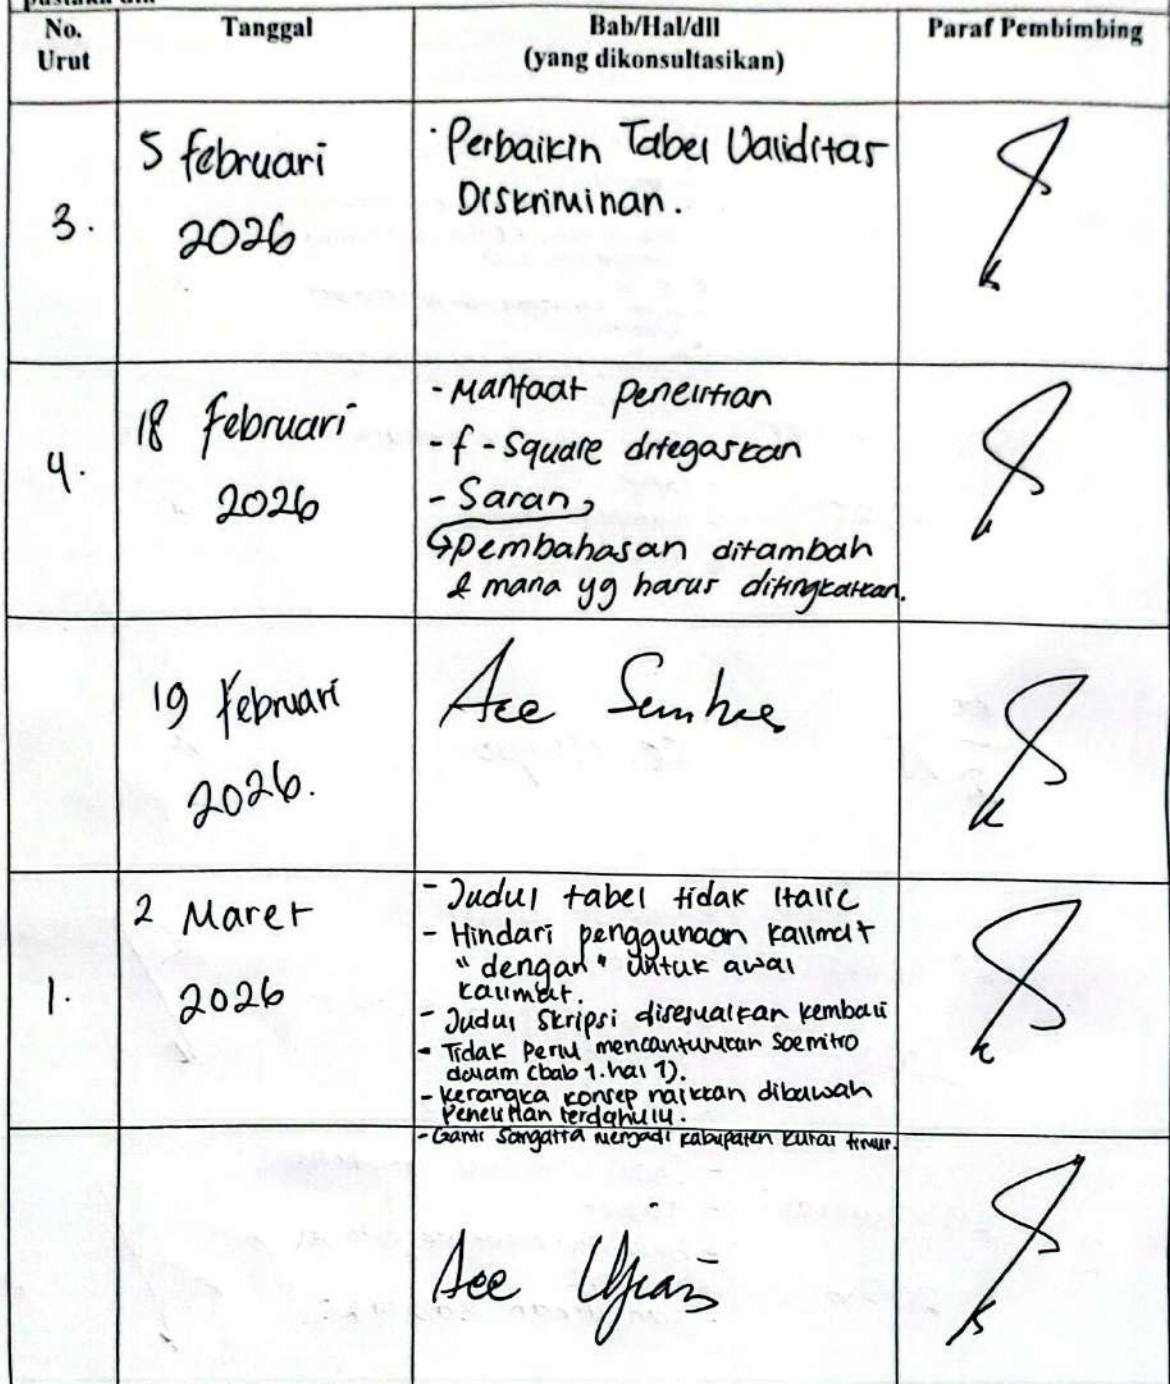 No. Urut
Tanggal
Bab/Hal/dll
(yang dikonsultasikan)
Paraf Pembimbing
3.
5 Februari
2026
· Perbaikin Tabel Validitas
Diskriminan.
4.
18 Februari
2026
- Manfaat penelitian
- f - Square ditegaskan
- Saran,
↳ Pembahasan ditambah
& mana yg harus ditingkatkan.
19 Februari
2026.
Acc Semhas
1.
2 Maret
2026
- Judul tabel tidak Italic
- Hindari penggunaan kalimat
"dengan" untuk awal
kalimat.
- Judul Skripsi disesuaikan kembali
- Tidak perlu mencantumkan Soemitro
dalam (bab 1. hal 1).
- kerangka konsep naikkan dibawah
Penelitian terdahulu.
- Ganti Sangatta menjadi kabupaten kutai timur.
Acc Ujian